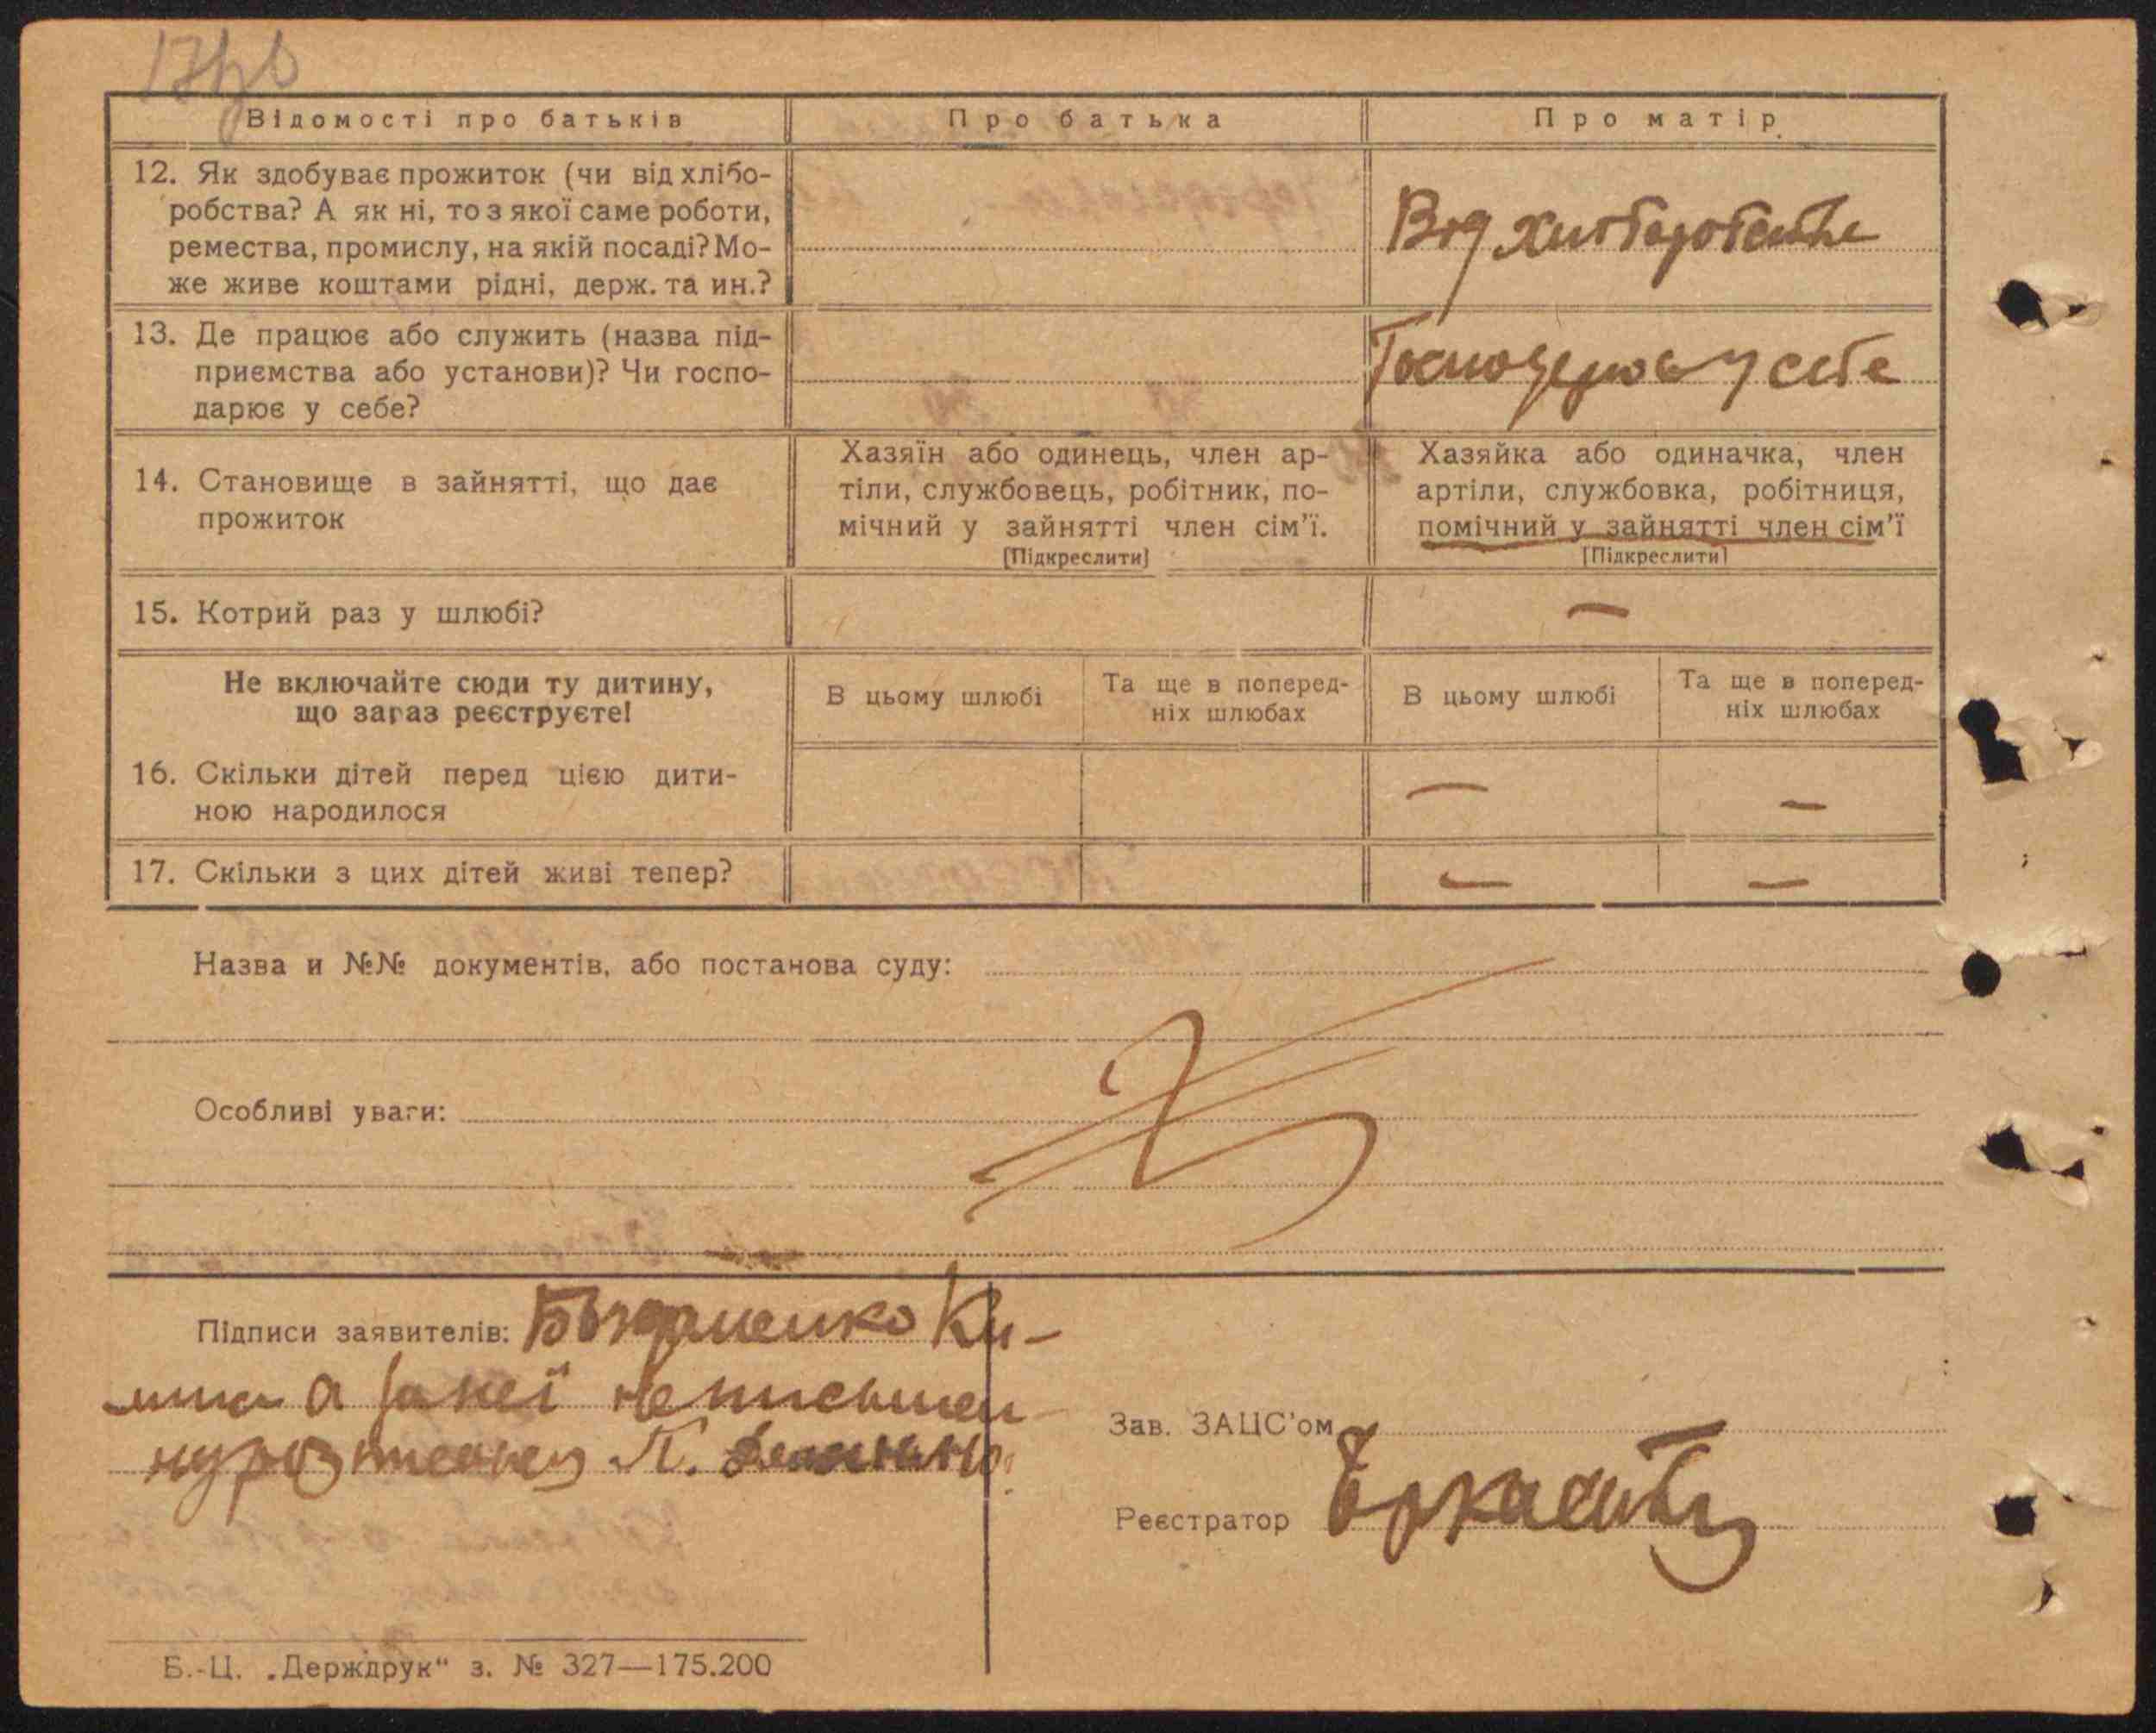 Відомості про батьків
Про батька
Про матір
12. Як здобуває прожиток (чи від хлібо-
робства? А як ні, то з якої саме роботи,
ремества, промислу, на якій посаді? Мо-
же живе коштами рідні, держ. та ин.?
Від хліборобства
13. Де працює або служить (назва під-
приємства або установи)? Чи госпо-
дарює у себе?
Господарює у себе
14. Становище в зайнятті, що дає
прожиток
Хазяїн або одинець, член ар-
тіли, службовець, робітник, по-
мічний у зайнятті член сім'ї.
[Підкреслити]
Хазяйка або одиначка, член
артіли, службовка, робітниця,
помічний у зайнятті член сім'ї
[Підкреслити]
15. Котрий раз у шлюбі?
—
Не включайте сюди ту дитину,
що зараз реєструєте!
В цьому шлюбі
Та ще в поперед-
ніх шлюбах
В цьому шлюбі
Та ще в поперед-
ніх шлюбах
16. Скільки дітей перед цією дити-
ною народилося
— —
17. Скільки з цих дітей живі тепер?
— —
Назва и №№ документів, або постанова суду:
Особливі уваги:
Підписи заявителів:
а за неї неписьмен
ну розписався П.
Зав. ЗАЦС'ом
Реєстратор
Б.-Ц. „Держдрук“ з. № 327—175.200